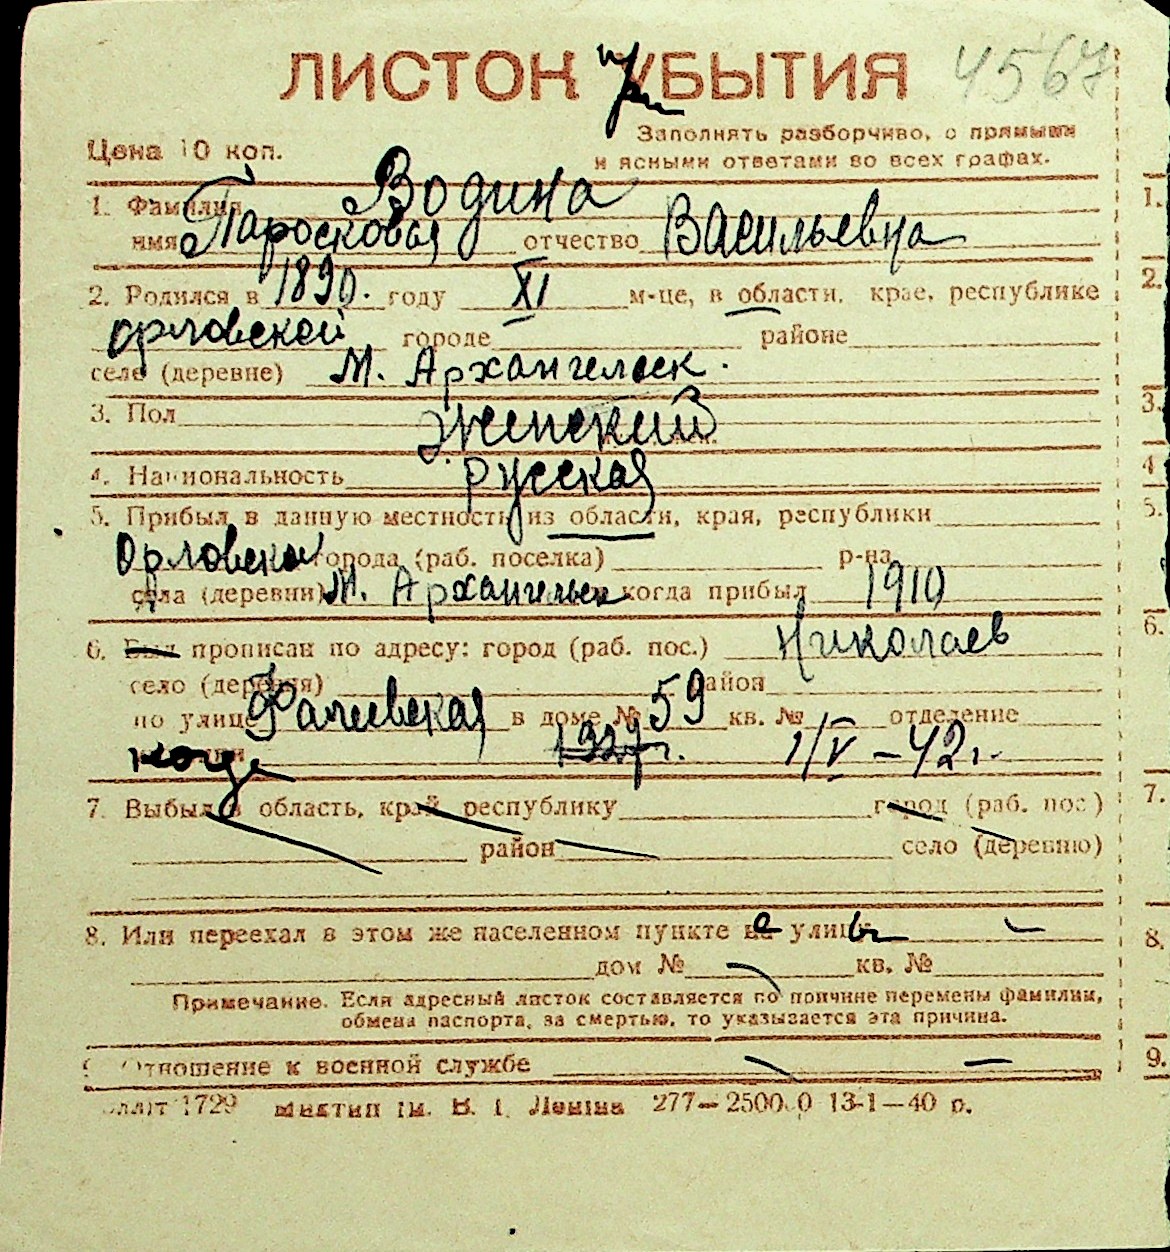 ЛИСТОК УБЫТИЯ 4567
Цена 10 коп.
Заполнять разборчиво, с прямыми
и ясными ответами во всех графах.
1. Фамилия Водина
имя Паросковая отчество Васильевна
2. Родился в 1890. году XI м-це, в области, крае, республике
орловской городе районе
селе (деревне) М. Архангельск.
3. Пол женский
4. Национальность русская
5. Прибыл в данную местность из области, края, республики
Орловской города (раб. поселка) р-на
села (деревни) М. Архангельск когда прибыл 1910
6. Был прописан по адресу: город (раб. пос.) Николаев
село (деревня) район
по улице Фалиевская в доме № 59 кв. № отделение
когда 1927 г. 1/V – 42 г.
7. Выбыл в область, край, республику город (раб. пос.)
район село (деревню)
8. Или переехал в этом же населенном пункте на улицу
дом № кв. №
Примечание. Если адресный листок составляется по причине перемены фамилии,
обмена паспорта, за смертью, то указывается эта причина.
Отношение к военной службе
1729 им. В. И. Ленина 277— 13-1—40 р.
1.
2.
3.
4
5.
6.
7.
8.
9.